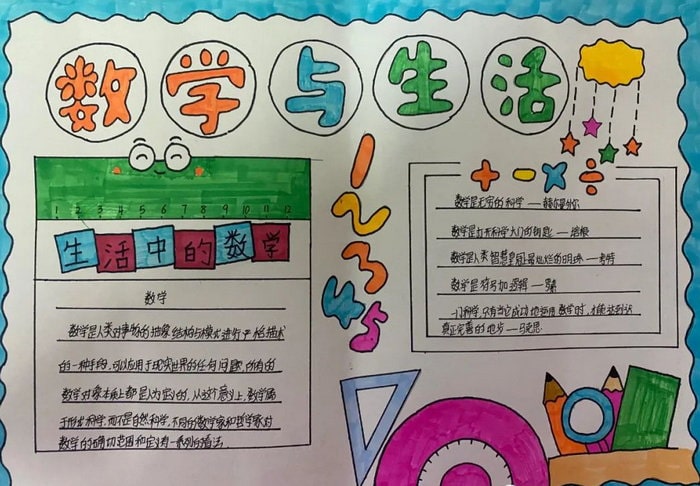 数学与生活
1 2 3 4 5 6 7 8 9 10 11 12
生活中的数学
数学
数学是人类对事物的抽象结构与模式进行严格描述
的一种手段,可以应用于现实世界的任何问题,所有的
数学对象本质上都是人为定义的,从这个意义上,数学属
于形式科学,而不是自然科学,不同的数学家和哲学家对
数学的确切范围和定义有一系列的看法。
1
2
3
4
5
+ - × ÷
数学是无穷的科学——赫尔曼外尔
数学是打开科学大门的钥匙——培根
数学是人类智慧皇冠上最灿烂的明珠——考特
数学是符号加逻辑——罗素
一门科学,只有当它成功地运用数学时,才能达到达
真正完善的地步——马克思